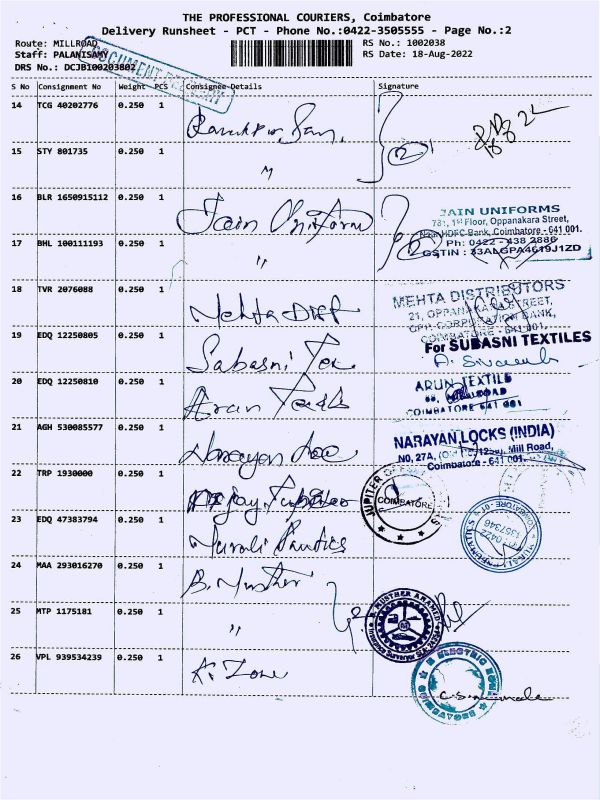 THE PROFESSIONAL COURIERS, Coimbatore
Delivery Runsheet - PCT - Phone No.:0422-3505555 - Page No.:2
Route: MILLROAD
RS No.: 1002038
Staff: PALANISAMY
RS Date: 18-Aug-2022
DRS No.: DCJB100203802
DOCUMENT
S No Consignment No Weight PCS Consignee Details Signature
14 TCG 40202776 0.250 1
15 STY 801735 0.250 1 "
16 BLR 1650915112 0.250 1 Jain Uniform
JAIN UNIFORMS
1st Floor, Oppanakara Street,
HDFC Bank, Coimbatore - 641 001.
Ph: 0422 - 438 2886
GSTIN : 33ALGPA4619J1ZD
17 BHL 100111193 0.250 1 "
18 TVR 2076088 0.250 1 Mehta Dist
MEHTA DISTRIBUTORS
21, OPPANAKARA STREET,
CORPORATION BANK,
COIMBATORE - 641 001.
19 EDQ 12250805 0.250 1 Sabasni Tex
For SUBASNI TEXTILES
20 EDQ 12250810 0.250 1 Arun Textile
ARUN TEXTILE
COIMBATORE 641 001
21 AGH 530085577 0.250 1 Narayan Loc
NARAYAN LOCKS (INDIA)
NO. 27A, Mill Road,
Coimbatore - 641 001.
22 TRP 1930000 0.250 1
JUPITER
COIMBATORE
23 EDQ 47383794 0.250 1 Murali
0422
1357346
24 MAA 293016270 0.250 1 B. Musther
25 MTP 1175181 0.250 1 "
B. MUSTHER AHAMED
26 VPL 939534239 0.250 1 K. Zone
ELECTRIC
COIMBATORE